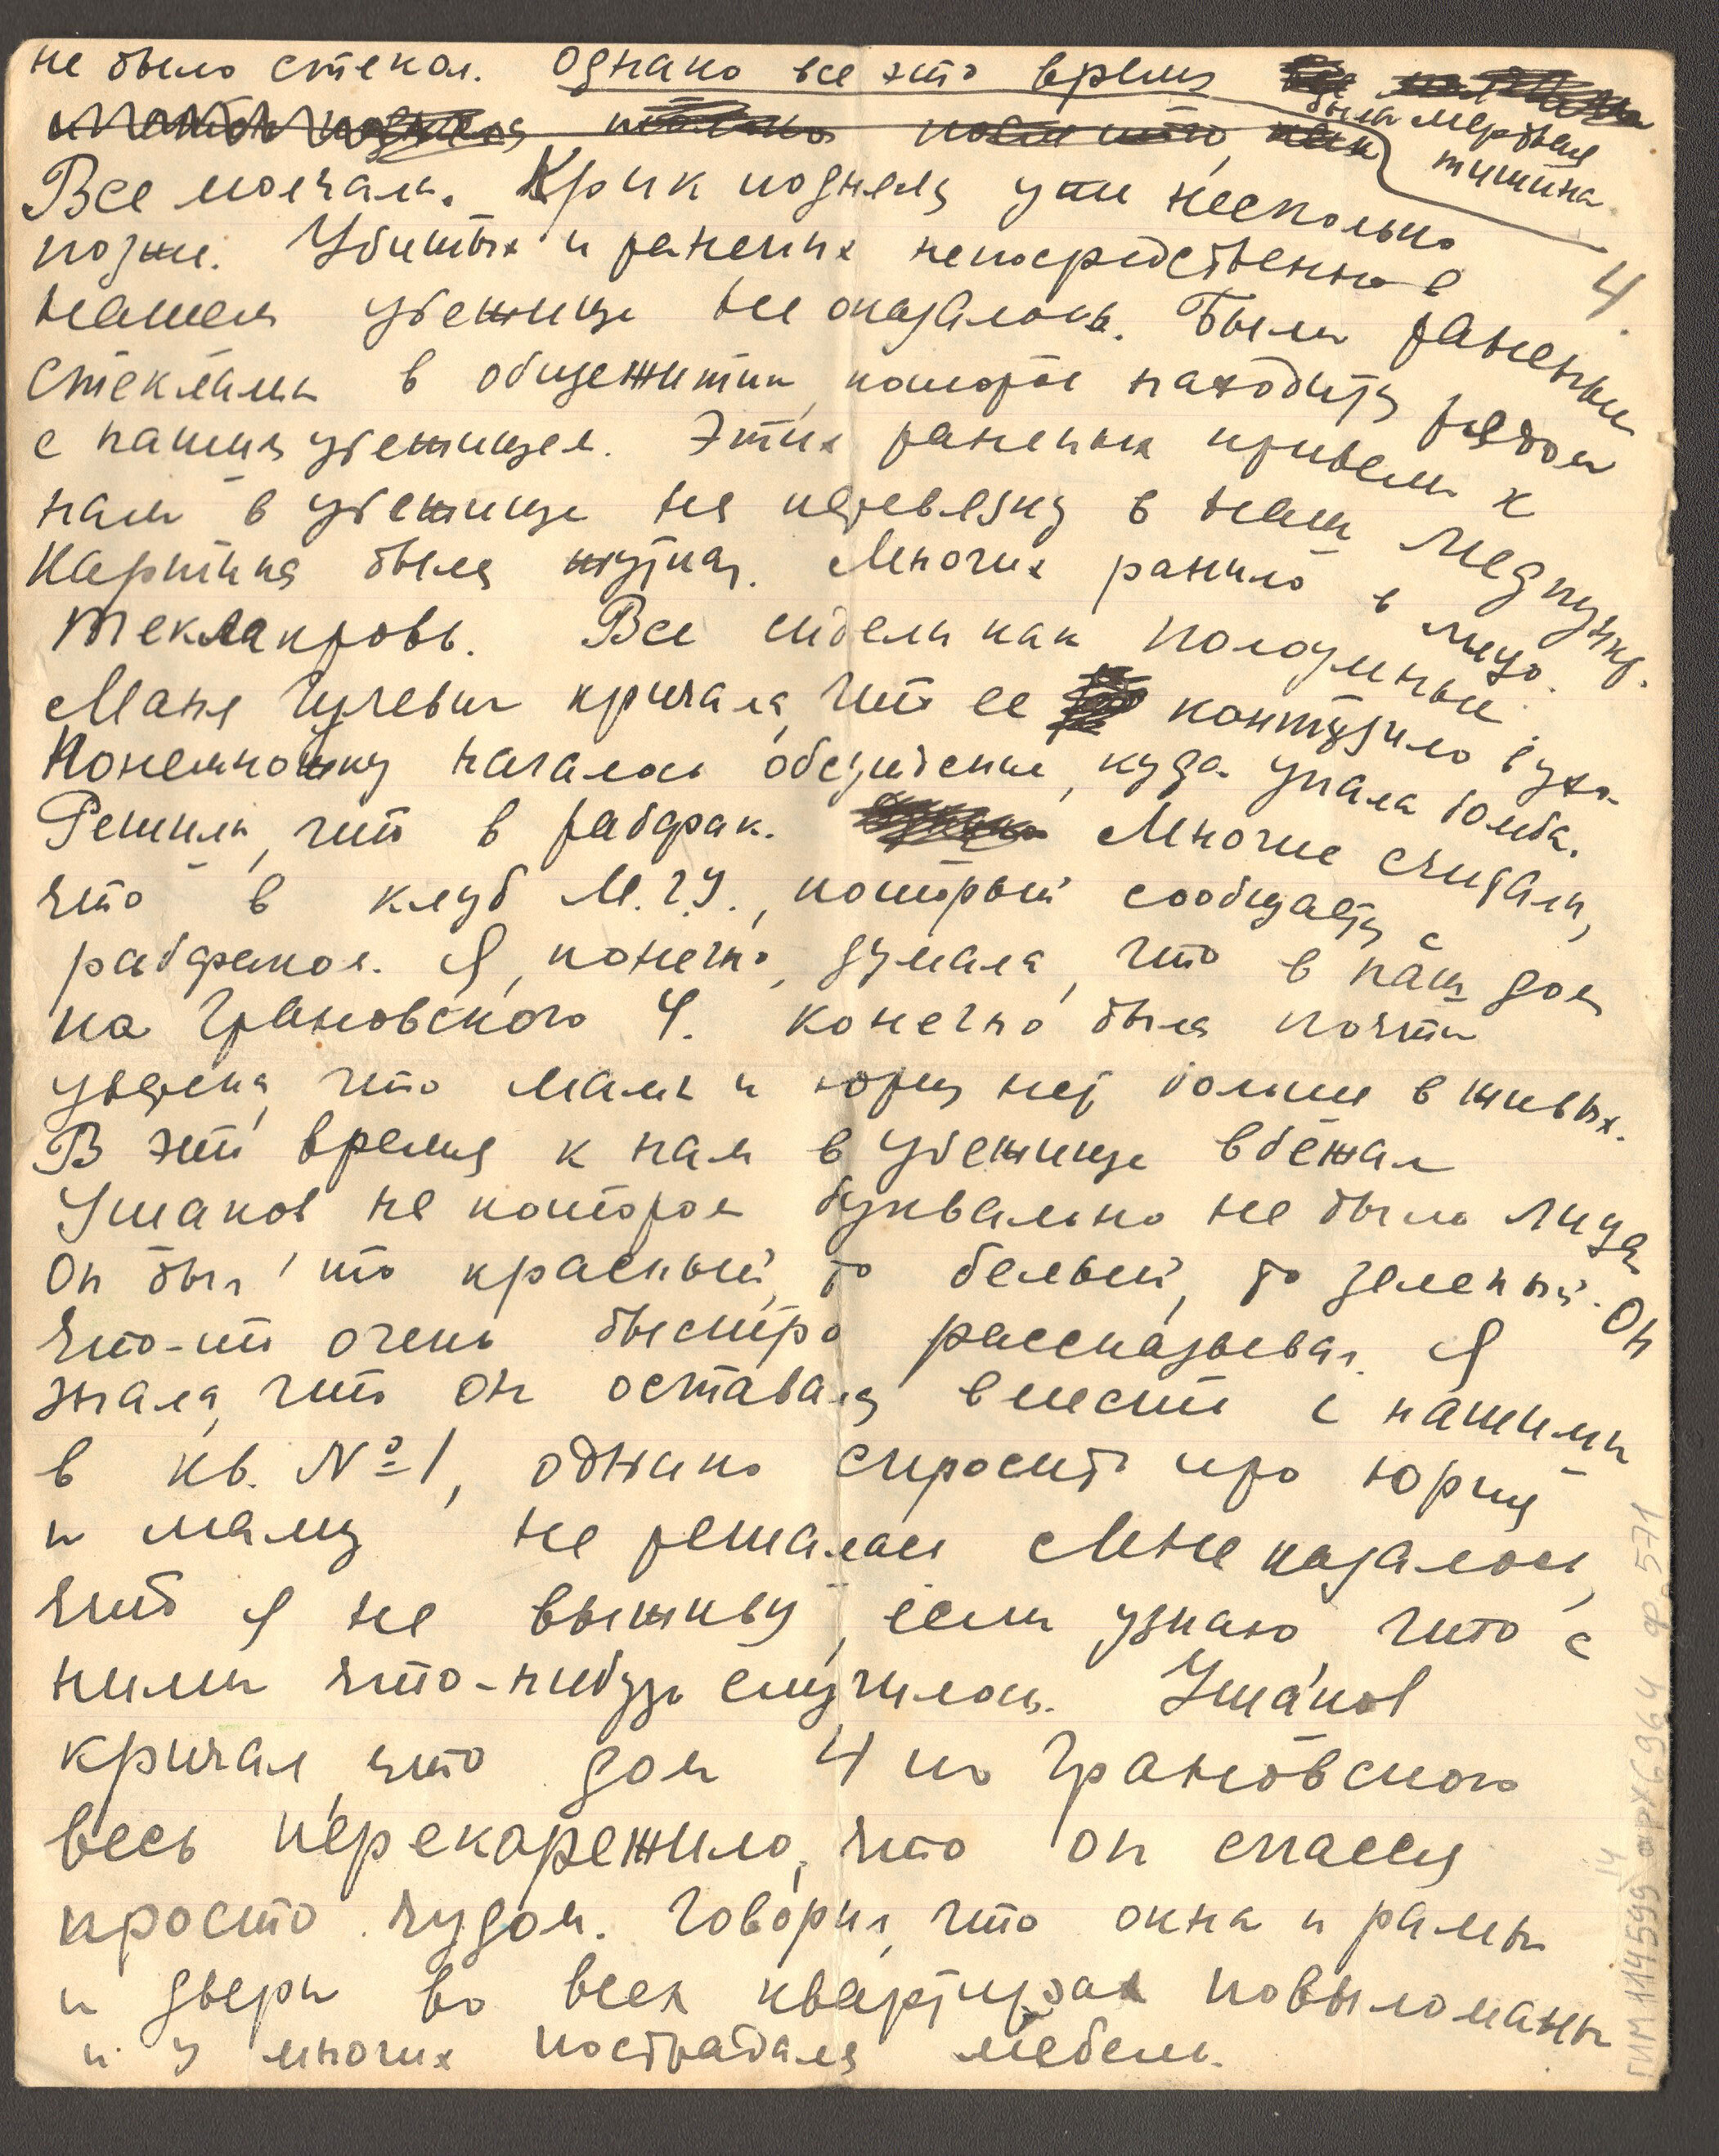 не было стекол. Однако все это время была мертвая тишина.
Все молчали. Крик поднялся уже несколько
позже. Убитых и раненых непосредственно в
4.
нашем убежище не оказалось. Были раненые
стеклами в общежитии, которое находится рядом
с нашим убежищем. Этих раненых привели к
нам в убежище на перевязку в наш медпункт.
Картина была жуткая. Многих ранило в лицо.
Текла кровь. Все сидели как полоумные.
Маня Гуревич кричала, что ее контузило в ухо.
Понемножку началось обсуждение, куда упала бомба.
Решили, что в рабфак. Многие считали,
что в клуб М.Г.У., который сообщается с
рабфаком. Я, конечно, думала, что в наш дом
на Грановского 4. Конечно была почти
уверена, что мамы и Юрия нет больше в живых.
В это время к нам в убежище вбежал
Ушаков на котором буквально не было лица
Он был то красный, то белый, то зеленый. Он
что-то очень быстро рассказывал. Я
знала, что он оставался вместе с нашими
в кв. № 1, однако спросить про Юрия
и маму не решалась. Мне казалось,
что я не выживу, если узнаю, что с
ними что-нибудь случилось. Ушаков
кричал, что дом 4 по Грановского
весь перекорежило, что он спасся
просто чудом. Говорил, что окна и рамы
и двери во всех квартирах повыломаны
и у многих пострадала мебель.
ГИМ 114599/14 арх 6964 Ф. 571